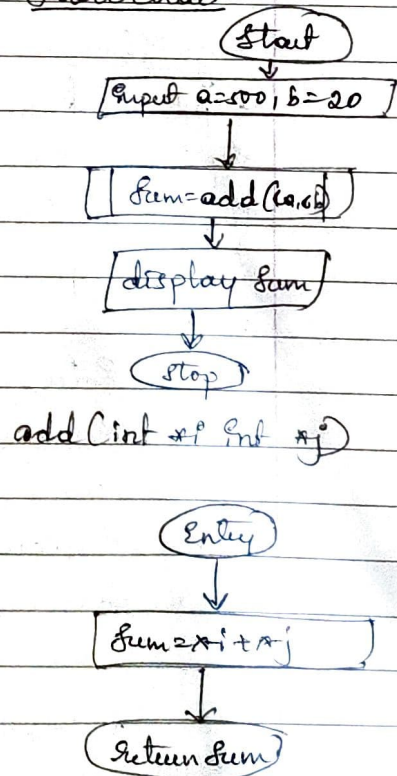 Start
Input a=500, b=20
Sum=add(&a,&b)
display Sum
Stop
add (int *i int *j)
Entry
Sum=*i+*j
return Sum